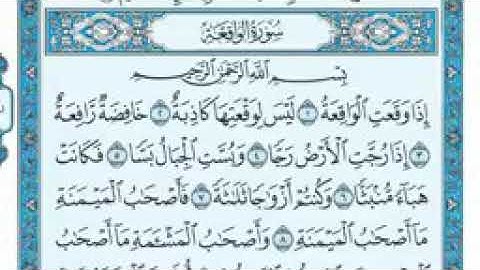 سُورَةُ الوَاقِعَةِ
بِسْمِ اللَّهِ الرَّحْمَٰنِ الرَّحِيمِ
إِذَا وَقَعَتِ الْوَاقِعَةُ ١ لَيْسَ لِوَقْعَتِهَا كَاذِبَةٌ ٢ خَافِضَةٌ رَّافِعَةٌ
٣ إِذَا رُجَّتِ الْأَرْضُ رَجًّا ٤ وَبُسَّتِ الْجِبَالُ بَسًّا ٥ فَكَانَتْ
هَبَاءً مُّنْبَثًّا ٦ وَكُنتُمْ أَزْوَاجًا ثَلَاثَةً ٧ فَأَصْحَابُ الْمَيْمَنَةِ
مَا أَصْحَابُ الْمَيْمَنَةِ ٨ وَأَصْحَابُ الْمَشْأَمَةِ مَا أَصْحَابُ